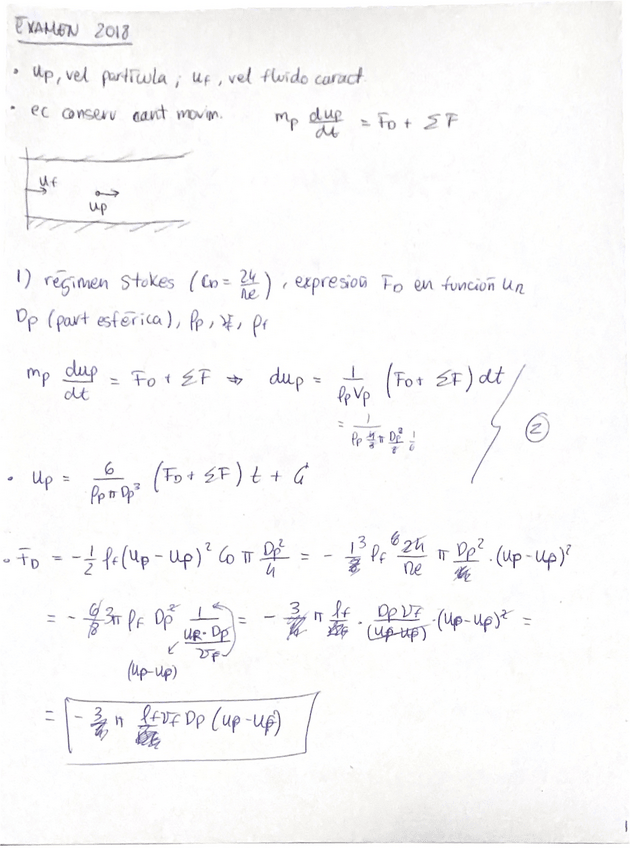 EXAMEN 2018
• up, vel partícula ; uf, vel fluido caract.
• ec conserv cant movim. mp dup/dt = FD + ΣF
uf
up
1) régimen Stokes (CD = 24/Re), expresión FD en función uR
Dp (part esférica), ρp, νf, ρf
mp dup/dt = FD + ΣF ⇒ dup = 1/(ρp Vp) (FD + ΣF) dt
= 1/(ρp π Dp³ 1/6)
②
• up = 6/(ρp π Dp³) (FD + ΣF) t + C
• FD = -1/2 ρf (up - uf)² CD π Dp²/4 = - ρf 24/Re π Dp² · (up - uf)²
= - 3π ρf Dp² 1/(uR · Dp/νf) = - 3 π ρf · Dp νf/(up - uf) · (up - uf)² =
(up - uf)
= - 3 π ρf νf Dp (up - uf)
1